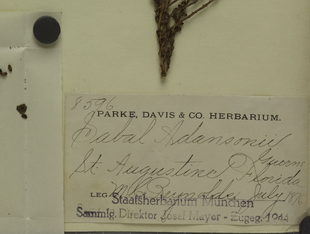 8596
PARKE, DAVIS & CO. HERBARIUM.
Sabal Adansonii
Guerns
St Augustine Florida
LEG. M C Reynolds, July 1876
Staatsherbarium München
Sammlg. Direktor Josef Mayer - Zugeg. 1944